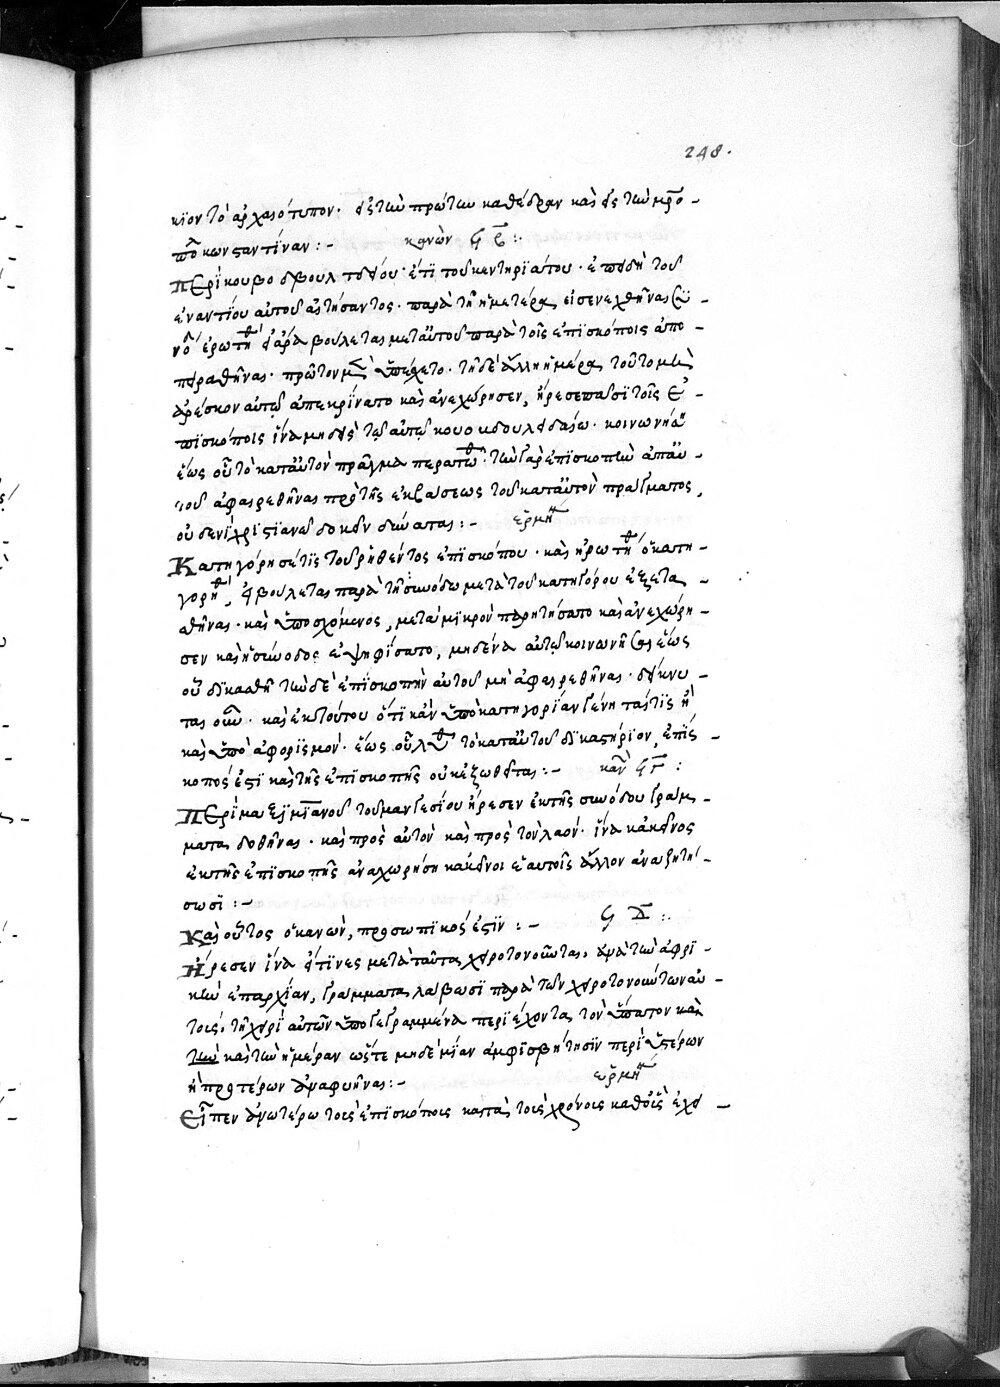 248.
κϊον τὸ ἀρχαιότυπον· εἰς τὴν πρώτην καθέδραν καὶ εἰς τὴν μητρό-
πολ κωνσταντίναν :- κανὼν ϟβ :.
Περὶ κουβο δβουλ τδέου· ἐπὶ τοῦ κεντηρϊάτου· ἐπειδὴ τοῦ
ἐναντίου αὐτοῦ αἰτήσαντος· παρὰ τῇ ἡμετέρᾳ εἰσενεχθῆναι συ-
νό ἐρωτηθ εἰ ἄρα βούλεται μετ αὐτοῦ παρὰ τοῖς ἐπισκόποις ἀπο-
πειραθῆναι· πρῶτον μεν ὑπέσχετο· τῇ δὲ ἄλλῃ ἡμέρᾳ τοῦτο μὴ
ἀρέσκον αὐτῷ ἀπεκρίνατο καὶ ἀνεχώρησεν, ἤρεσε πᾶσϊ τοῖς ἐ-
πϊσκόποις ἵνα μηδεὶς τῷ αὐτῷ κουο υδουλ δεέω· κοινωνήση
ἕως οὗ τὸ κατ αὐτὸν πρᾶγμα περατωθ· τὴν γὰρ ἐπϊσκοπὴν ἀπ αὐ-
τοῦ ἀφαιρεθῆναι πρὸ τῆς ἐκβάσεως τοῦ κατ αὐτὸν πράγματος,
οὐδενὶ χριστϊανῷ δοκεῖν δύναται :- ἑρμη
Κατηγόρησέ τϊς τοῦ ῥηθέντος ἐπϊσκόπου· καὶ ἠρωτηθ ὁ κατη-
γορηθ, εἰ βούλεται παρὰ τῇ συνόδω μετὰ τοῦ κατηγόρου ἐξετα-
σθῆναι· καὶ ὑποσχόμενος, μετὰ μϊκρὸν παρητήσατο καὶ ἀνεχώρη-
σεν καὶ ἡ σύνοδος ἐψηφίσατο, μηδένα αὐτῷ κοινωνῆσαι ἕως
οὗ δϊκασθῆ τὴν δὲ ἐπϊσκοπὴν αὐτοῦ μὴ ἀφαιρεθῆναι· δείκνυ-
ται οὖν· καὶ ἐκ τούτου ὅτϊ κἂν ὑπὸ κατηγορίαν γένηταί τϊς ἢ
καὶ ὑπὸ ἀφορϊσμόν· ἕως οὗ λυθ τὸ κατ αὐτοῦ δϊκαστήρϊον, ἐπίσ-
κοπός ἐστϊ καὶ τῆς ἐπϊσκοπῆς οὐκ ἐξωθεῖται :- καν ϟγ :
Περὶ μαξϊμϊανοῦ τοῦ μανγεσίου ἤρεσεν ἐκ τῆς συνόδου γράμ-
ματα δοθῆναι· καὶ πρὸς αὐτὸν καὶ πρὸς τὸν λαόν· ἵνα κἀκεῖνος
ἐκ τῆς ἐπϊσκοπῆς ἀναχωρήση κἀκεῖνοι ἑαυτοῖς ἄλλον ἀναζητή-
σωσϊ :-
Καὶ οὗτος ὁ κανὼν, προσωπϊκός ἐστϊν :- ϟδ :.
Ἤρεσεν ἵνα οἵτϊνες μετὰ ταῦτα χειροτονοῦνται, ἀνὰ τὴν ἀφρϊ-
κὴν ἐπαρχίαν, γράμματα λάβωσϊ παρὰ τῶν χειροτονούντων αὐ-
τοὺς, τῇ χειρὶ αὐτῶν ὑπογεγραμμένα περϊέχοντα τὸν ὕπατον καὶ
τὴν καὶ τὴν ἡμέραν ὥστε μηδεμϊᾶν ἀμφϊσβήτησϊν περὶ ὑστέρων
ἢ προτέρων ἀναφυῆναι :- ἑρμη
Εἶπεν ἀνωτέρω τοὺς ἐπϊσκόπους κατὰ τοὺς χρόνους καθ οὓς ἐχει-